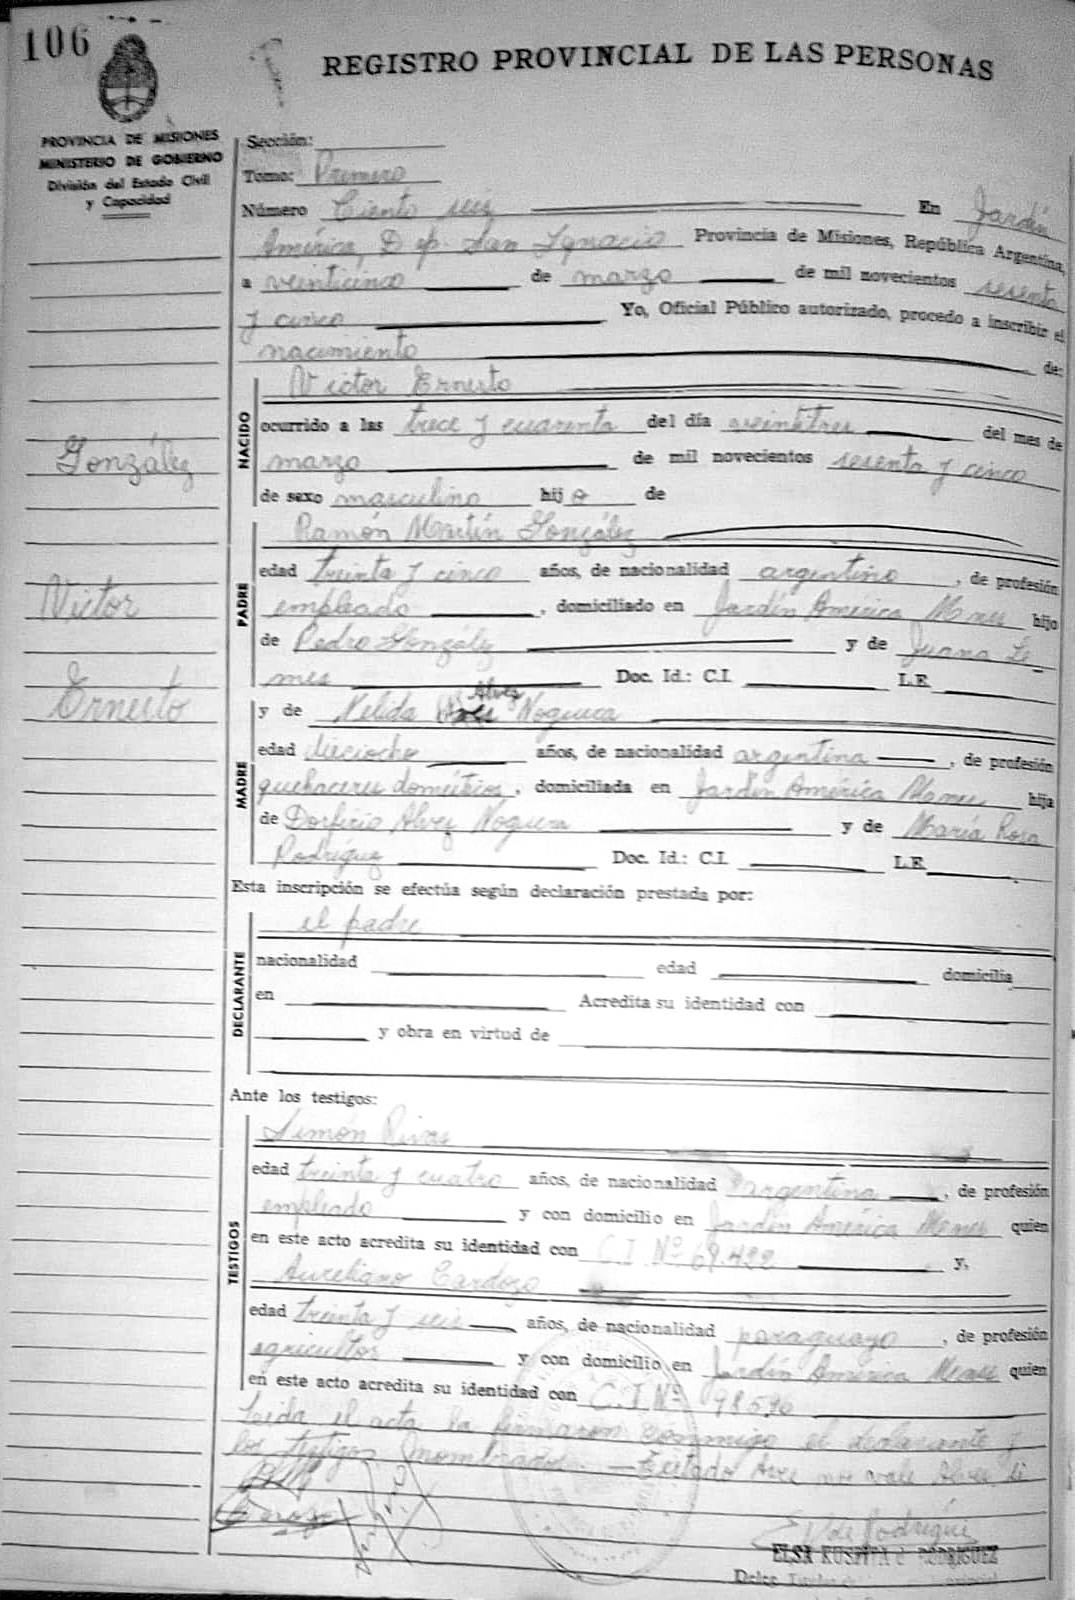 106
REGISTRO PROVINCIAL DE LAS PERSONAS
PROVINCIA DE MISIONES
MINISTERIO DE GOBIERNO
División del Estado Civil
y Capacidad
Sección:
Tomo: Primero
Número Ciento seis En Jardín
América, Dep. San Ignacio Provincia de Misiones, República Argentina,
a veinticinco de marzo de mil novecientos sesenta
y cinco Yo, Oficial Público autorizado, procedo a inscribir el
nacimiento de:
González
Victor
Ernesto
NACIDO
Victor Ernesto
ocurrido a las trece y cuarenta del día veintitres del mes de
marzo de mil novecientos sesenta y cinco
de sexo masculino hij o de
PADRE
Ramón Martín González
edad treinta y cinco años, de nacionalidad argentino, de profesión
empleado, domiciliado en Jardín América Mnes hijo
de Pedro González y de Juana Le
mes Doc. Id.: C.I. L.E.
MADRE
y de Nelida Alvez Noguera
edad dieciocho años, de nacionalidad argentina, de profesión
quehaceres domésticos, domiciliada en Jardín América Mones hija
de Porfirio Alvez Noguera y de María Rosa
Rodríguez Doc. Id.: C.I. L.E.
Esta inscripción se efectúa según declaración prestada por:
DECLARANTE
el padre
nacionalidad edad domicilia
en Acredita su identidad con
y obra en virtud de
Ante los testigos:
TESTIGOS
Simón Rivas
edad treinta y cuatro años, de nacionalidad argentina, de profesión
empleado y con domicilio en Jardín América Mones quien
en este acto acredita su identidad con C.I. Nº 69.422 y,
Aureliano Cardozo
edad treinta y seis años, de nacionalidad paraguayo, de profesión
agricultor y con domicilio en Jardín América Mones quien
en este acto acredita su identidad con C.I. Nº 98596
Leida el acta la firmaron conmigo el declarante y
los testigos nombrados. Testado Avez no vale Alvez
E. V. de Rodríguez
ELSA RODRIGUEZ